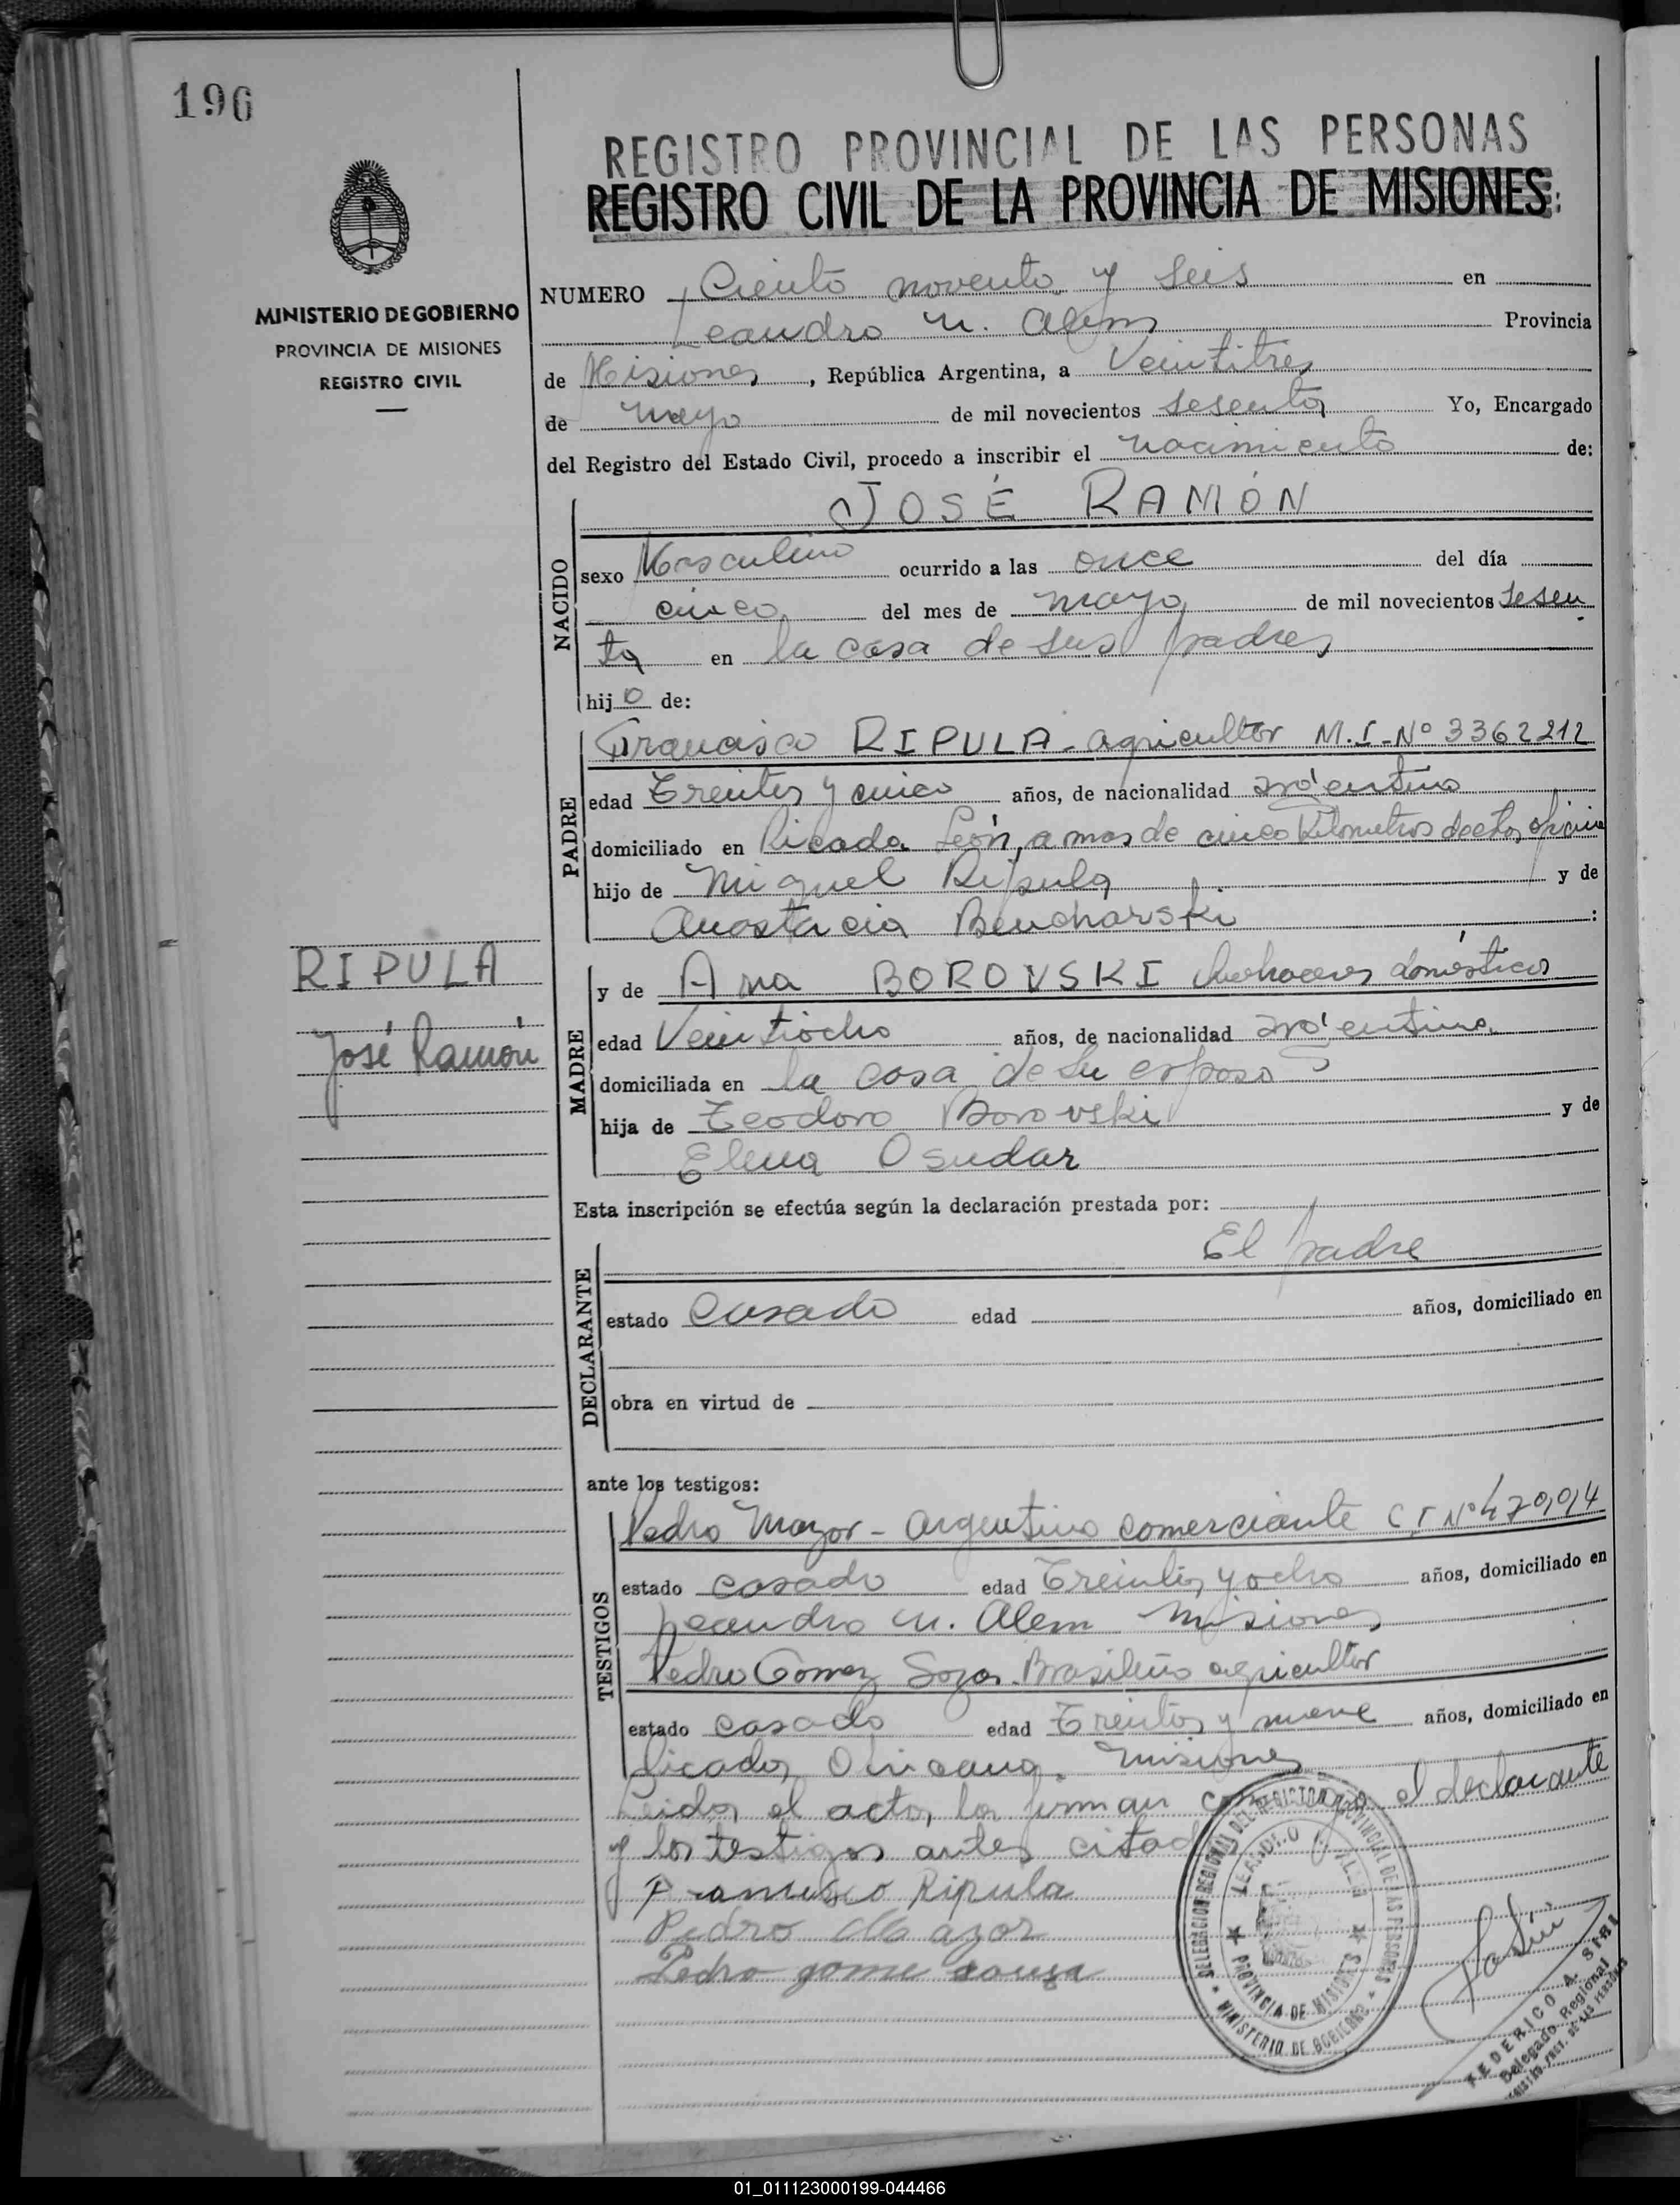 196
REGISTRO PROVINCIAL DE LAS PERSONAS
REGISTRO CIVIL DE LA PROVINCIA DE MISIONES
MINISTERIO DE GOBIERNO
PROVINCIA DE MISIONES
REGISTRO CIVIL
NUMERO Ciento noventa y seis en
Leandro N. Alem Provincia
de Misiones, República Argentina, a Veintitres
de mayo de mil novecientos sesenta Yo, Encargado
del Registro del Estado Civil, procedo a inscribir el nacimiento de:
JOSÉ RAMÓN
NACIDO
sexo Masculino ocurrido a las once del día
cinco del mes de mayo de mil novecientos sesen
ta en la casa de sus padres
hijo de:
PADRE
Francisco RIPULA - agricultor M.I. Nº 3362212
edad Treinta y cinco años, de nacionalidad argentino
domiciliado en Picada León, a mas de cinco Kilometros de esta oficina
hijo de Miguel Ripula y de
Anastacia Bencharski :
RIPULA
José Ramón
MADRE
y de Ana BOROVSKI quehaceres domésticos
edad Veintiocho años, de nacionalidad argentina
domiciliada en la casa de su esposo
hija de Teodoro Borovski y de
Elena Osudar
Esta inscripción se efectúa según la declaración prestada por:
El padre
DECLARANTE
estado Casado edad años, domiciliado en
obra en virtud de
ante los testigos:
TESTIGOS
Pedro Mazor - Argentino comerciante C.I Nº
estado casado edad Treinta y ocho años, domiciliado en
Leandro N. Alem Misiones
Pedro Gomez Soza. Brasileño agricultor
estado casado edad Treinta y nueve años, domiciliado en
Picada Misiones
Leida el acta, la firman conmigo el declarante
y los testigos antes citad
Francisco Ripula
Pedro Mazor
Pedro gome souza
DELEGACION REGIONAL DEL REGISTRO PROVINCIAL DE LAS PERSONAS
LEANDRO N. ALEM
PROVINCIA DE MISIONES
MINISTERIO DE GOBIERNO
FEDERICO A. SIRI
Delegado Regional
REGISTRO PROV. DE LAS PERSONAS
01_011123000199-044466